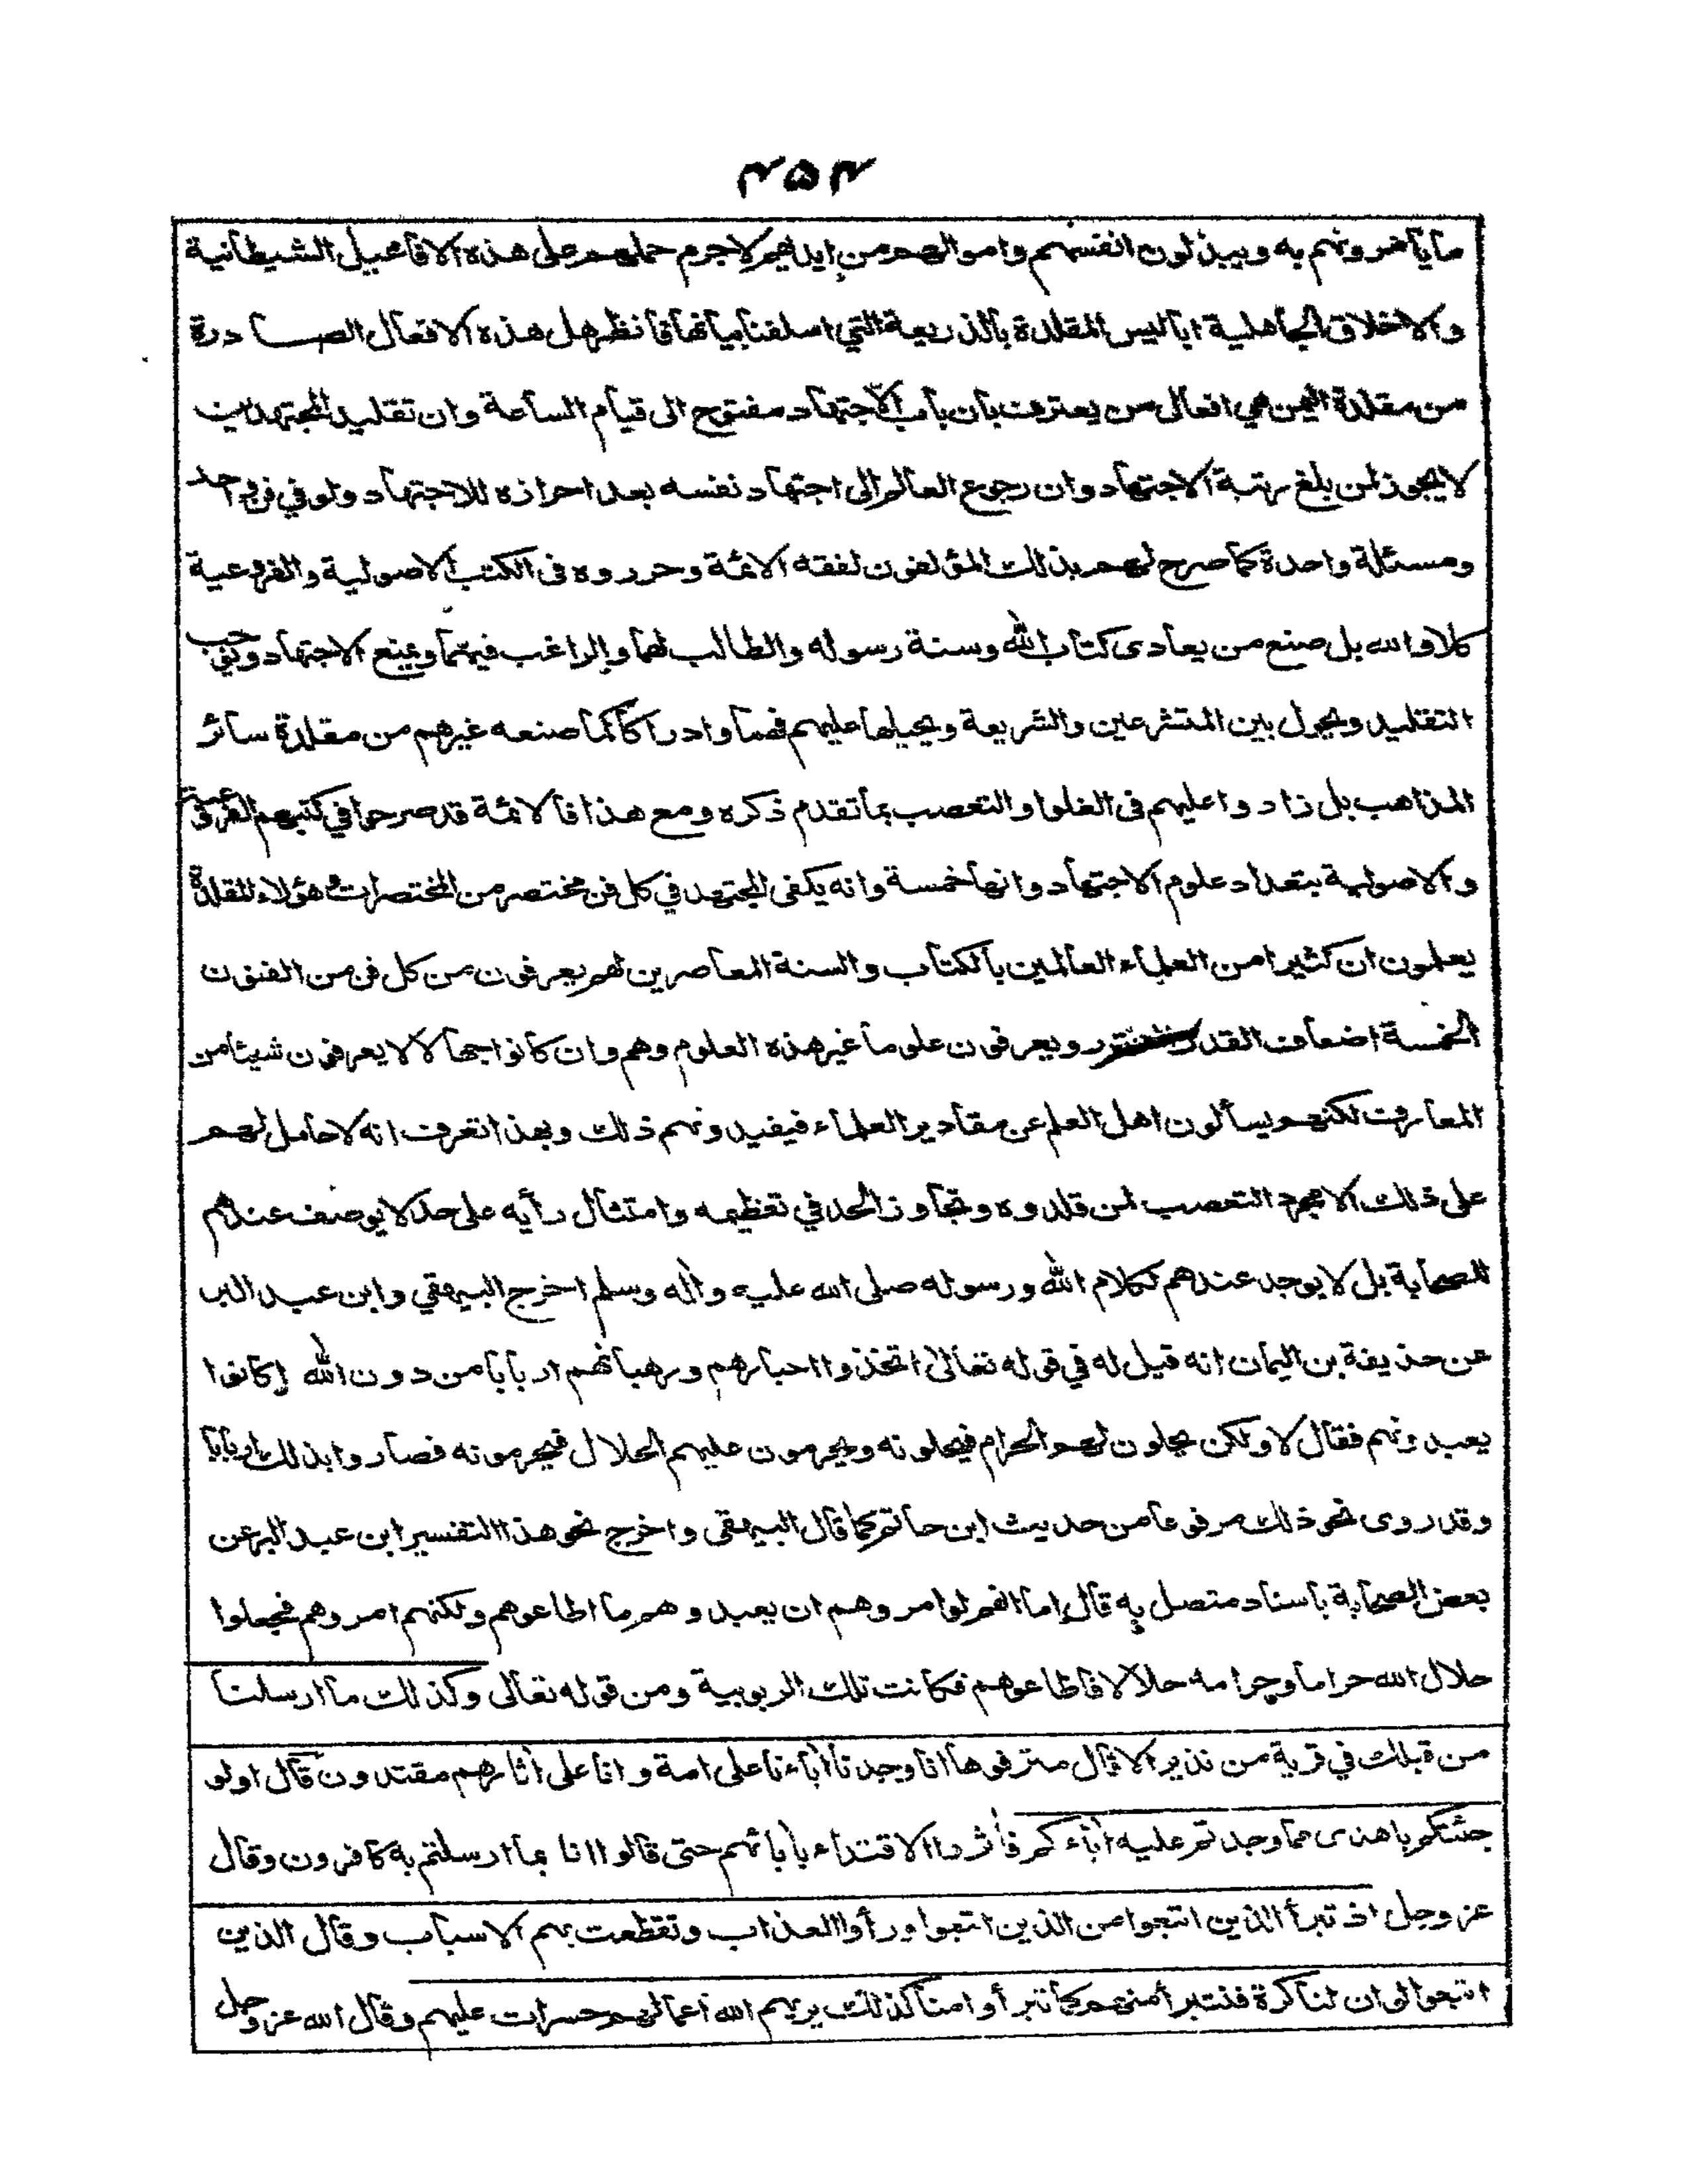 ۴۵۴
ما يأمرونهم به ويبذلون انفسهم واموالهم من ايديهم لاجرم حملهم على هذه الافاعيل الشيطانية
والاخلاق الجاهلية اباليس المقلدة بالذريعة التي اسلفنا بيانها فانظر هل هذه الافعال الصادرة
من مقلدة اليمن هي افعال من يعترف بان باب الاجتهاد مفتوح الى قيام الساعة وان تقليد المجتهدين
لا يجوز لمن بلغ رتبة الاجتهاد وان رجوع العالم الى اجتهاد نفسه بعد احرازه للاجتهاد ولو في فن واحد
ومسئلة واحدة كما صرح لهم بذلك المؤلفون لفقه الائمة وحرروه فى الكتب الاصولية والفروعية
كلا والله بل صنع من يعادى كتاب الله وسنة رسوله والطالب لهما والراغب فيهما ويمنع الاجتهاد ويوجب
التقليد ويحول بين المتشرعين والشريعة ويحيلها عليهم فهما وادراكا كما صنعه غيرهم من مقلدة سائر
المذاهب بل زادوا عليهم فى الغلو والتعصب بما تقدم ذكره ومع هذا فالائمة قد صرحوا في كتبهم الفروعية
والاصولية بتعداد علوم الاجتهاد وانها خمسة وانه يكفى المجتهد في كل فن مختصر من المختصرات وهؤلاء المقلدة
يعلمون ان كثيرا من العلماء العالمين بالكتاب والسنة المعاصرين لهم يعرفون من كل فن من الفنون
الخمسة اضعاف القدر ويعرفون علوما غير هذه العلوم وهم وان كانوا جهالا لا يعرفون شيئا من
المعارف لكنهم يسألون اهل العلم عن مقادير العلماء فيفيدونهم ذلك وبهذا تعرف انه لا حامل لهم
على ذلك الا مجرد التعصب لمن قلدوه وتجاوز الحد في تعظيمه وامتثال رأيه على حد لا يوصف عندهم
للصحابة بل لا يوجد عندهم لكلام الله ورسوله صلى الله عليه واله وسلم اخرج البيهقي وابن عبد البر
عن حذيفة بن اليمان انه قيل له في قوله تعالى اتخذوا احبارهم ورهبانهم اربابا من دون الله اكانوا
يعبدونهم فقال لا ولكن يحلون لهم الحرام فيحلونه ويحرمون عليهم الحلال فيحرمونه فصاروا بذلك اربابا
وقد روى نحو ذلك مرفوعا من حديث ابن حاتم كما قال البيهقى واخرج نحو هذا التفسير ابن عبد البر عن
بعض الصحابة باسناد متصل به قال اما انهم لو امروهم ان يعبدوهم ما اطاعوهم ولكنهم امروهم فجعلوا
حلال الله حراما وحرامه حلالا فاطاعوهم فكانت تلك الربوبية ومن قوله تعالى وكذلك ما ارسلنا
من قبلك في قرية من نذير الا قال مترفوها انا وجدنا اباءنا على امة وانا على اثارهم مقتدون قال اولو
جئتكم باهدى مما وجدتم عليه اباءكم فاثروا الاقتداء بابائهم حتى قالوا انا بما ارسلتم به كافرون وقال
عز وجل اذ تبرأ الذين اتبعوا من الذين اتبعوا ورأوا العذاب وتقطعت بهم الاسباب وقال الذين
اتبعوا لو ان لنا كرة فنتبرأ منهم كما تبرأوا منا كذلك يريهم الله اعمالهم حسرات عليهم وقال الله عز وجل